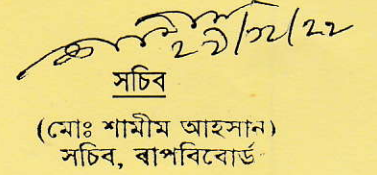 ২৯/১২/২২
সচিব
(মোঃ শামীম আহসান)
সচিব, বাপবিবোর্ড